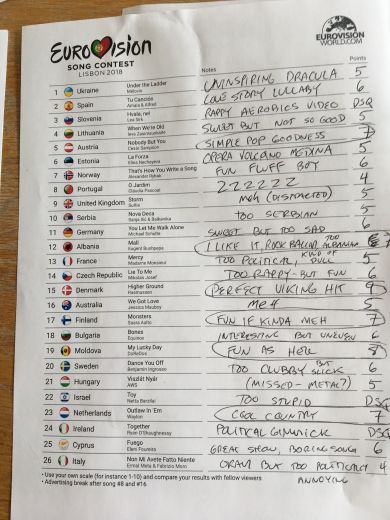 EUROVISION
SONG CONTEST
LISBON 2018
EUROVISION
WORLD.COM
Notes Points
1 Ukraine Under the Ladder Mélovin UNINSPIRING DRACULA 5
2 Spain Tu Canción Amaia & Alfred LOVE STORY LULLABY 6
3 Slovenia Hvala, ne! Lea Sirk RAPPY AEROBICS VIDEO DSQ
4 Lithuania When We're Old Ieva Zasimauskaitė SWEET BUT NOT SO GOOD 5
5 Austria Nobody But You Cesár Sampson SIMPLE POP GOODNESS 7
6 Estonia La Forza Elina Nechayeva OPERA VOLCANO 5
7 Norway That's How You Write a Song Alexander Rybak FUN FLUFF BOY 6
8 Portugal O Jardim Cláudia Pascoal ZZZZZZ 4
9 United Kingdom Storm SuRie MEH (DISTRACTED) 5
10 Serbia Nova Deca Sanja Ilić & Balkanika TOO SERBIAN 5
11 Germany You Let Me Walk Alone Michael Schulte SWEET BUT TOO SAD 6
12 Albania Mall Eugent Bushpepa I LIKE IT, ROCK BALLAD TOO ALBANIAN
13 France Mercy Madame Monsieur TOO POLITICAL, KIND OF DULL 5
14 Czech Republic Lie To Me Mikolas Josef TOO RAPPY - BUT FUN 6
15 Denmark Higher Ground Rasmussen PERFECT VIKING HIT 9
16 Australia We Got Love Jessica Mauboy MEH 5
17 Finland Monsters Saara Aalto FUN IF KINDA MEH 7
18 Bulgaria Bones Equinox INTERESTING BUT UNEVEN 6
19 Moldova My Lucky Day DoReDos FUN AS HELL 8
20 Sweden Dance You Off Benjamin Ingrosso TOO CLUBBY BUT SLICK 6
21 Hungary Viszlát Nyár AWS (MISSED - METAL?) 5
22 Israel Toy Netta Barzilai TOO STUPID DSQ
23 Netherlands Outlaw In 'Em Waylon COOL COUNTRY 7
24 Ireland Together Ryan O'Shaughnessy POLITICAL GIMMICK DSQ
25 Cyprus Fuego Eleni Foureira GREAT SHOW, BORING SONG 6
26 Italy Non Mi Avete Fatto Niente Ermal Meta & Fabrizio Moro OKAY BUT TOO POLITICALLY 4
ANNOYING
• Use your own scale (for instance 1-10) and compare your results with fellow viewers
• Advertising break after song #8 and #16